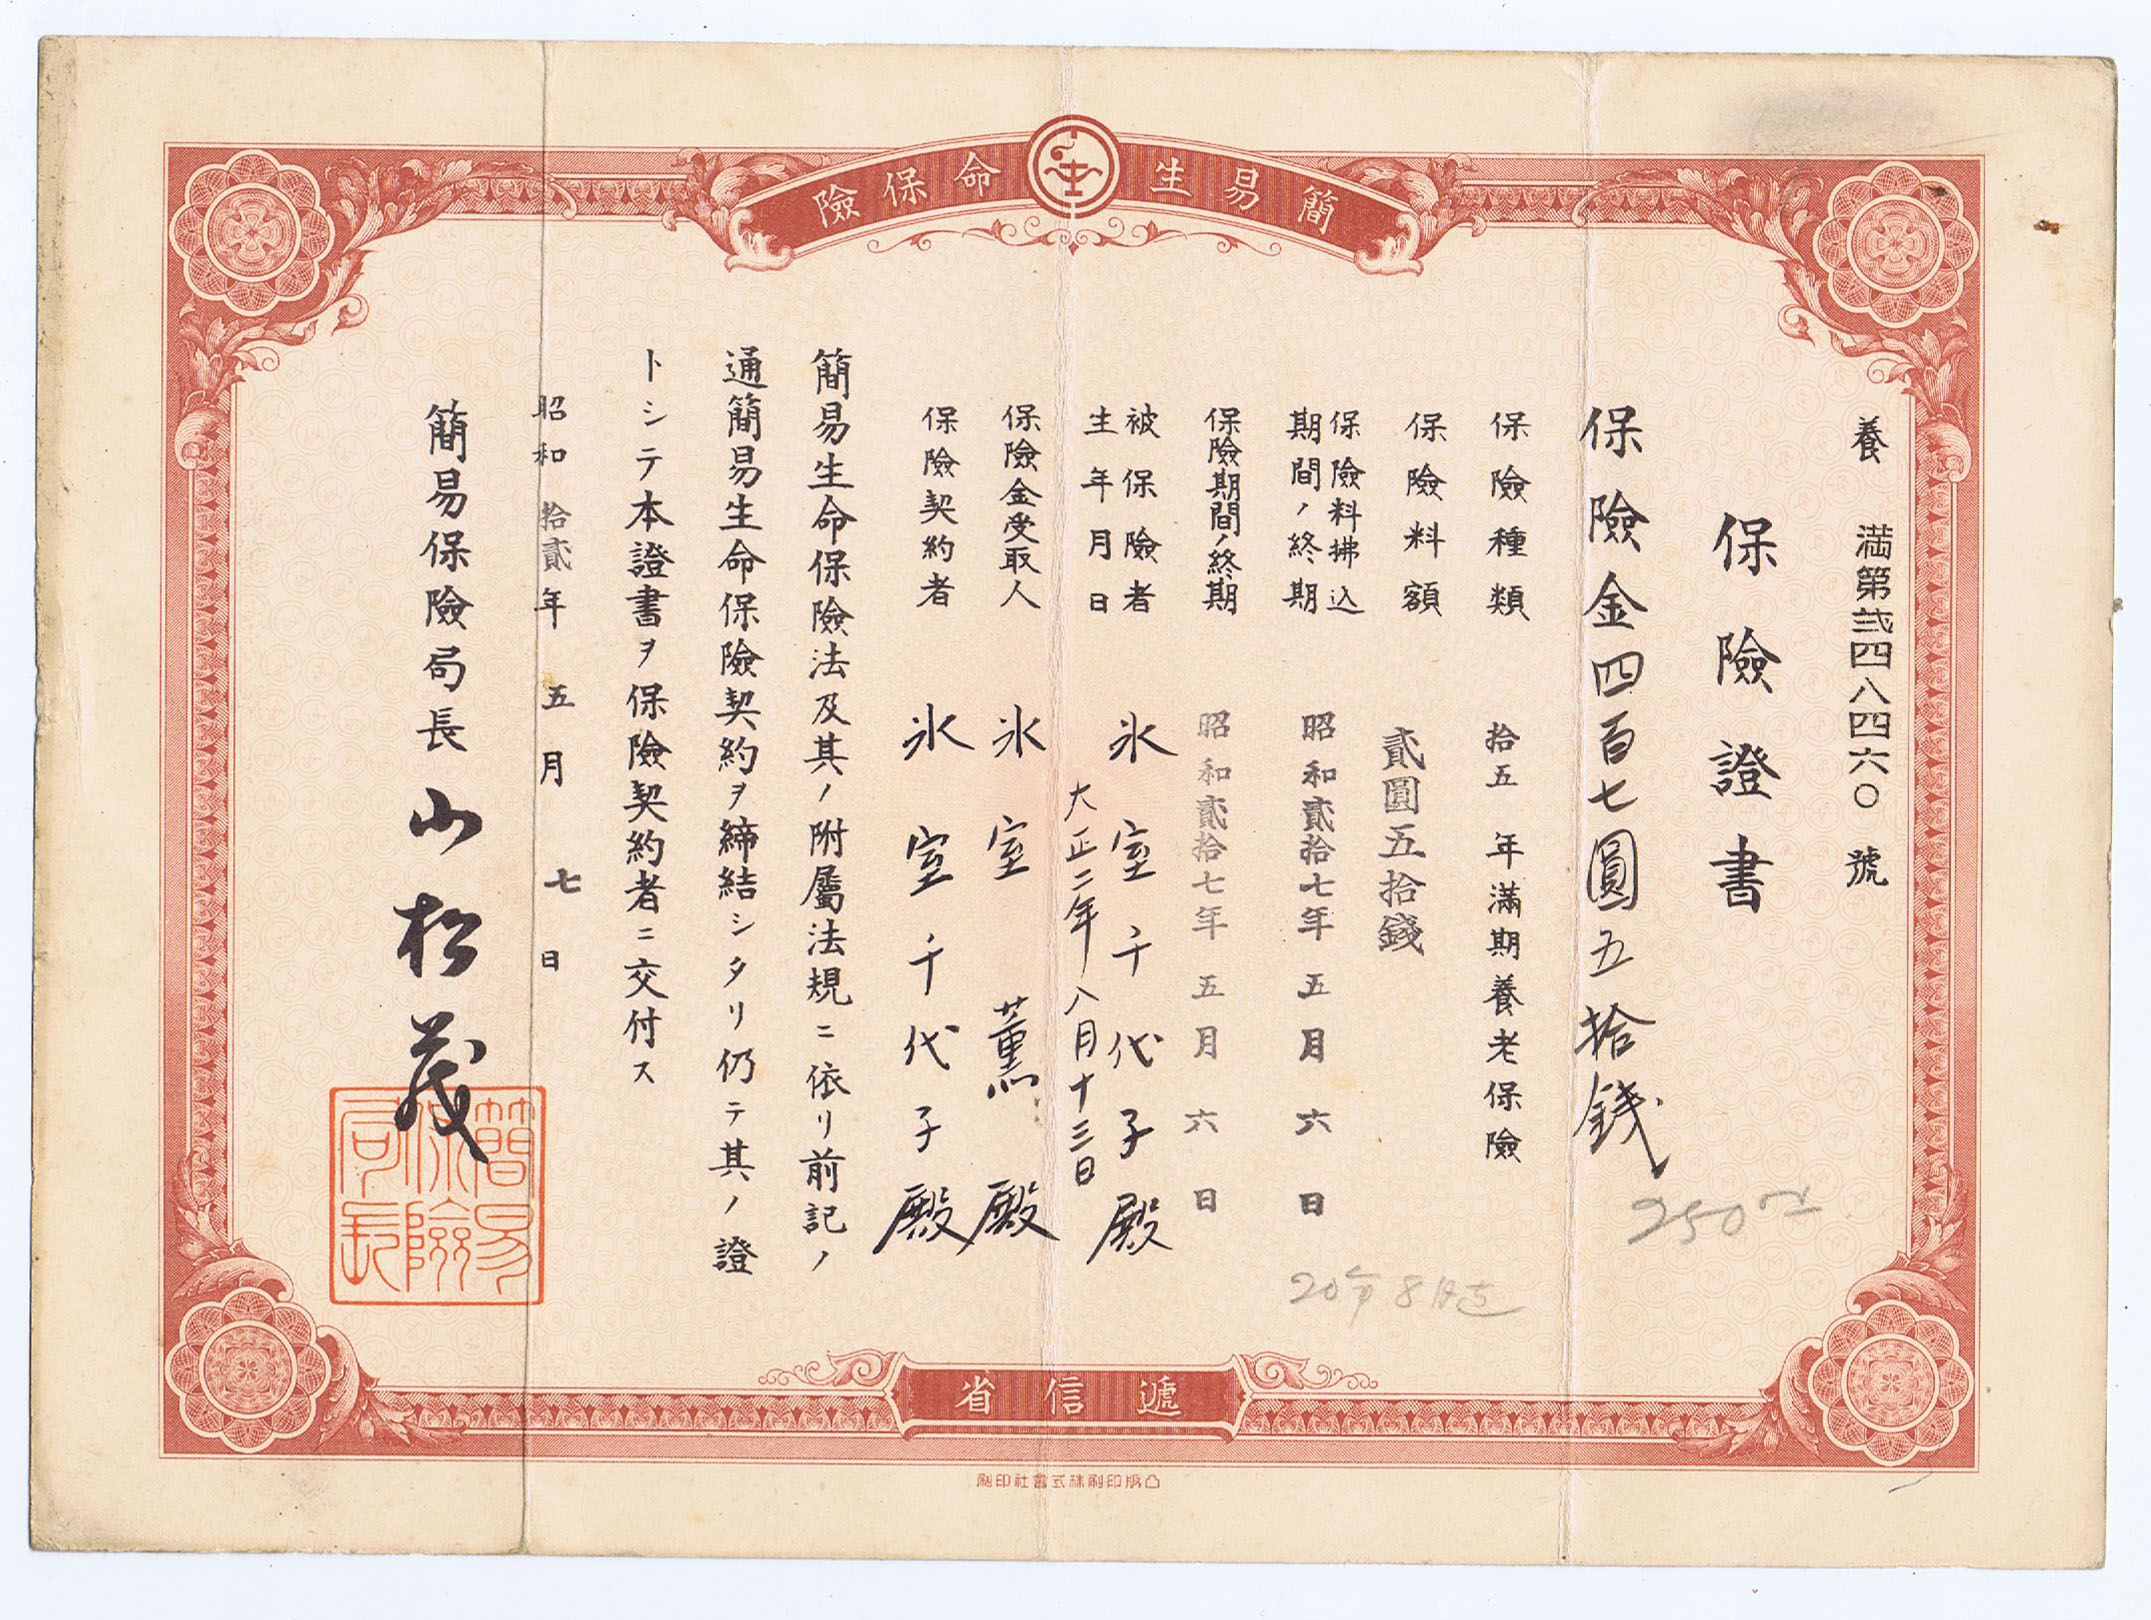 簡易生命保險
養 満第弐四八四六〇號
保險證書
保險金四百七圓五拾錢
保險種類 拾五年滿期養老保險
保險料額 貳圓五拾錢
保險料拂込
期間ノ終期 昭和貳拾七年五月六日
保險期間ノ終期 昭和貳拾七年五月六日
被保險者 氷室千代子殿
生年月日 大正二年八月十三日
保險金受取人 氷室薫殿
保險契約者 氷室千代子殿
簡易生命保險法及其ノ附屬法規ニ依リ前記ノ
通簡易生命保險契約ヲ締結シタリ仍テ其ノ證
トシテ本證書ヲ保險契約者ニ交付ス
昭和拾貳年五月七日
簡易保險局長 小松茂
簡易
保險
局長
250
20年8月迄
遞信省
凸版印刷株式會社印刷